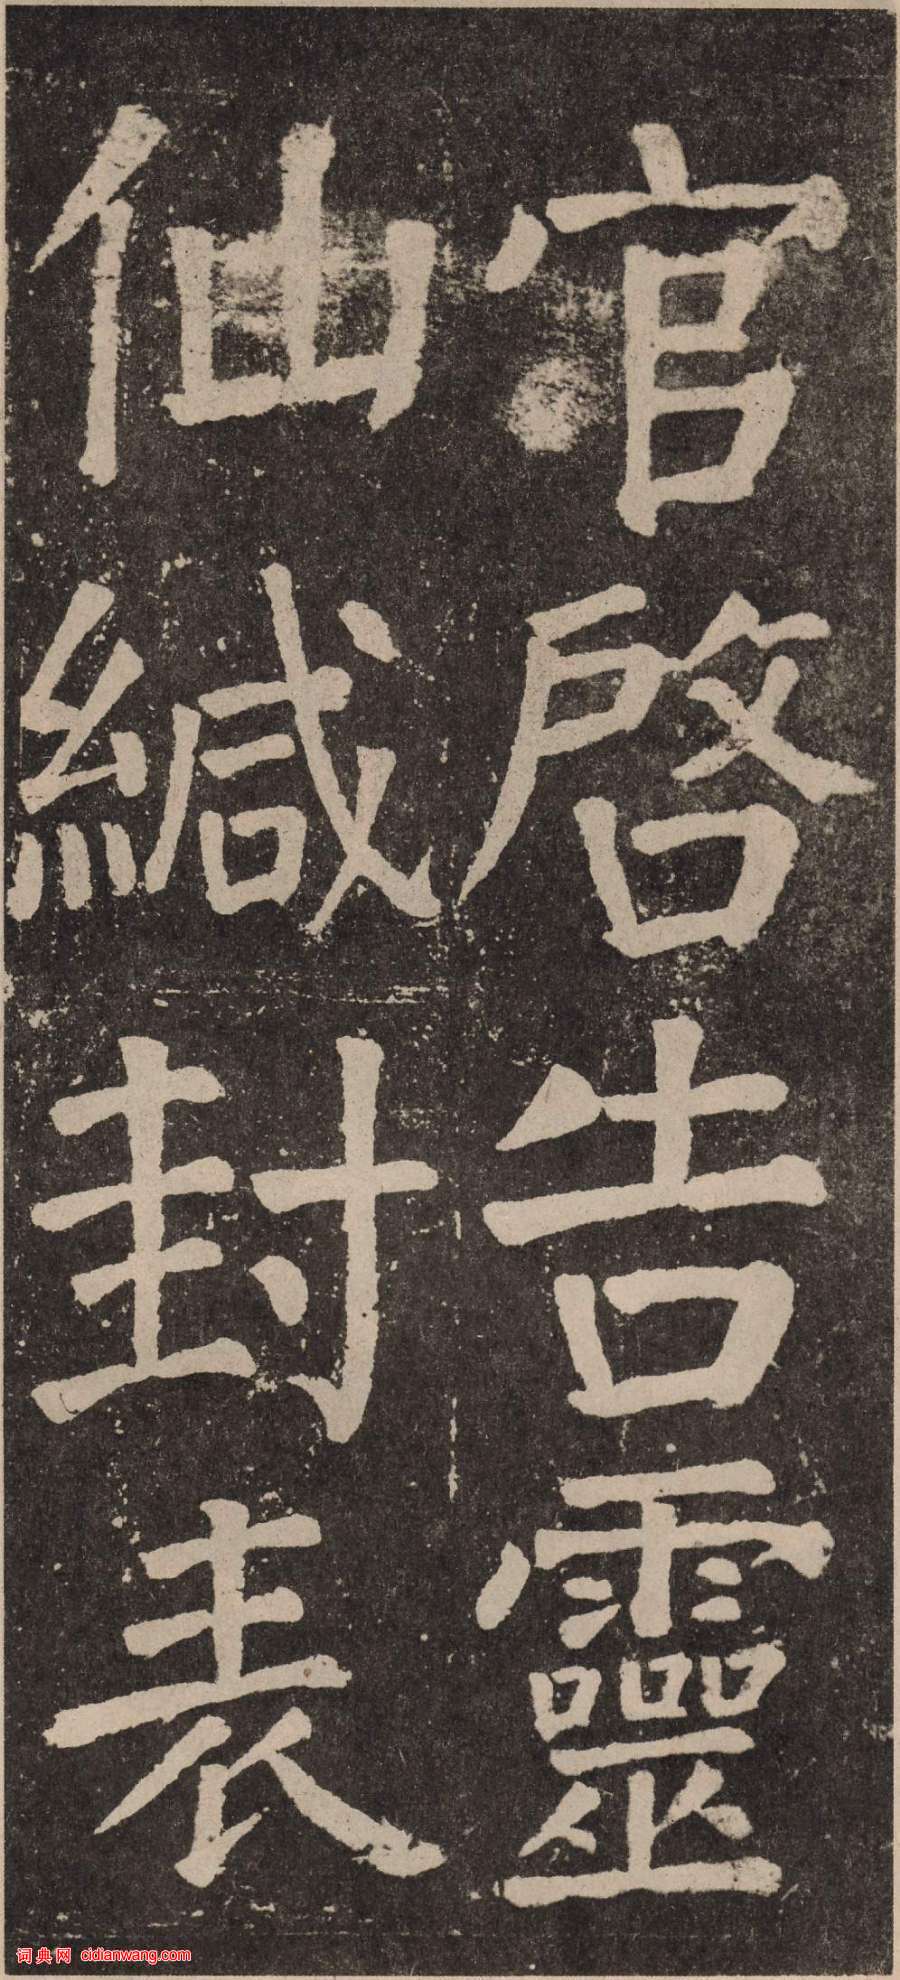 官啓告靈
仙緘封表
词典网 cidianwang.com